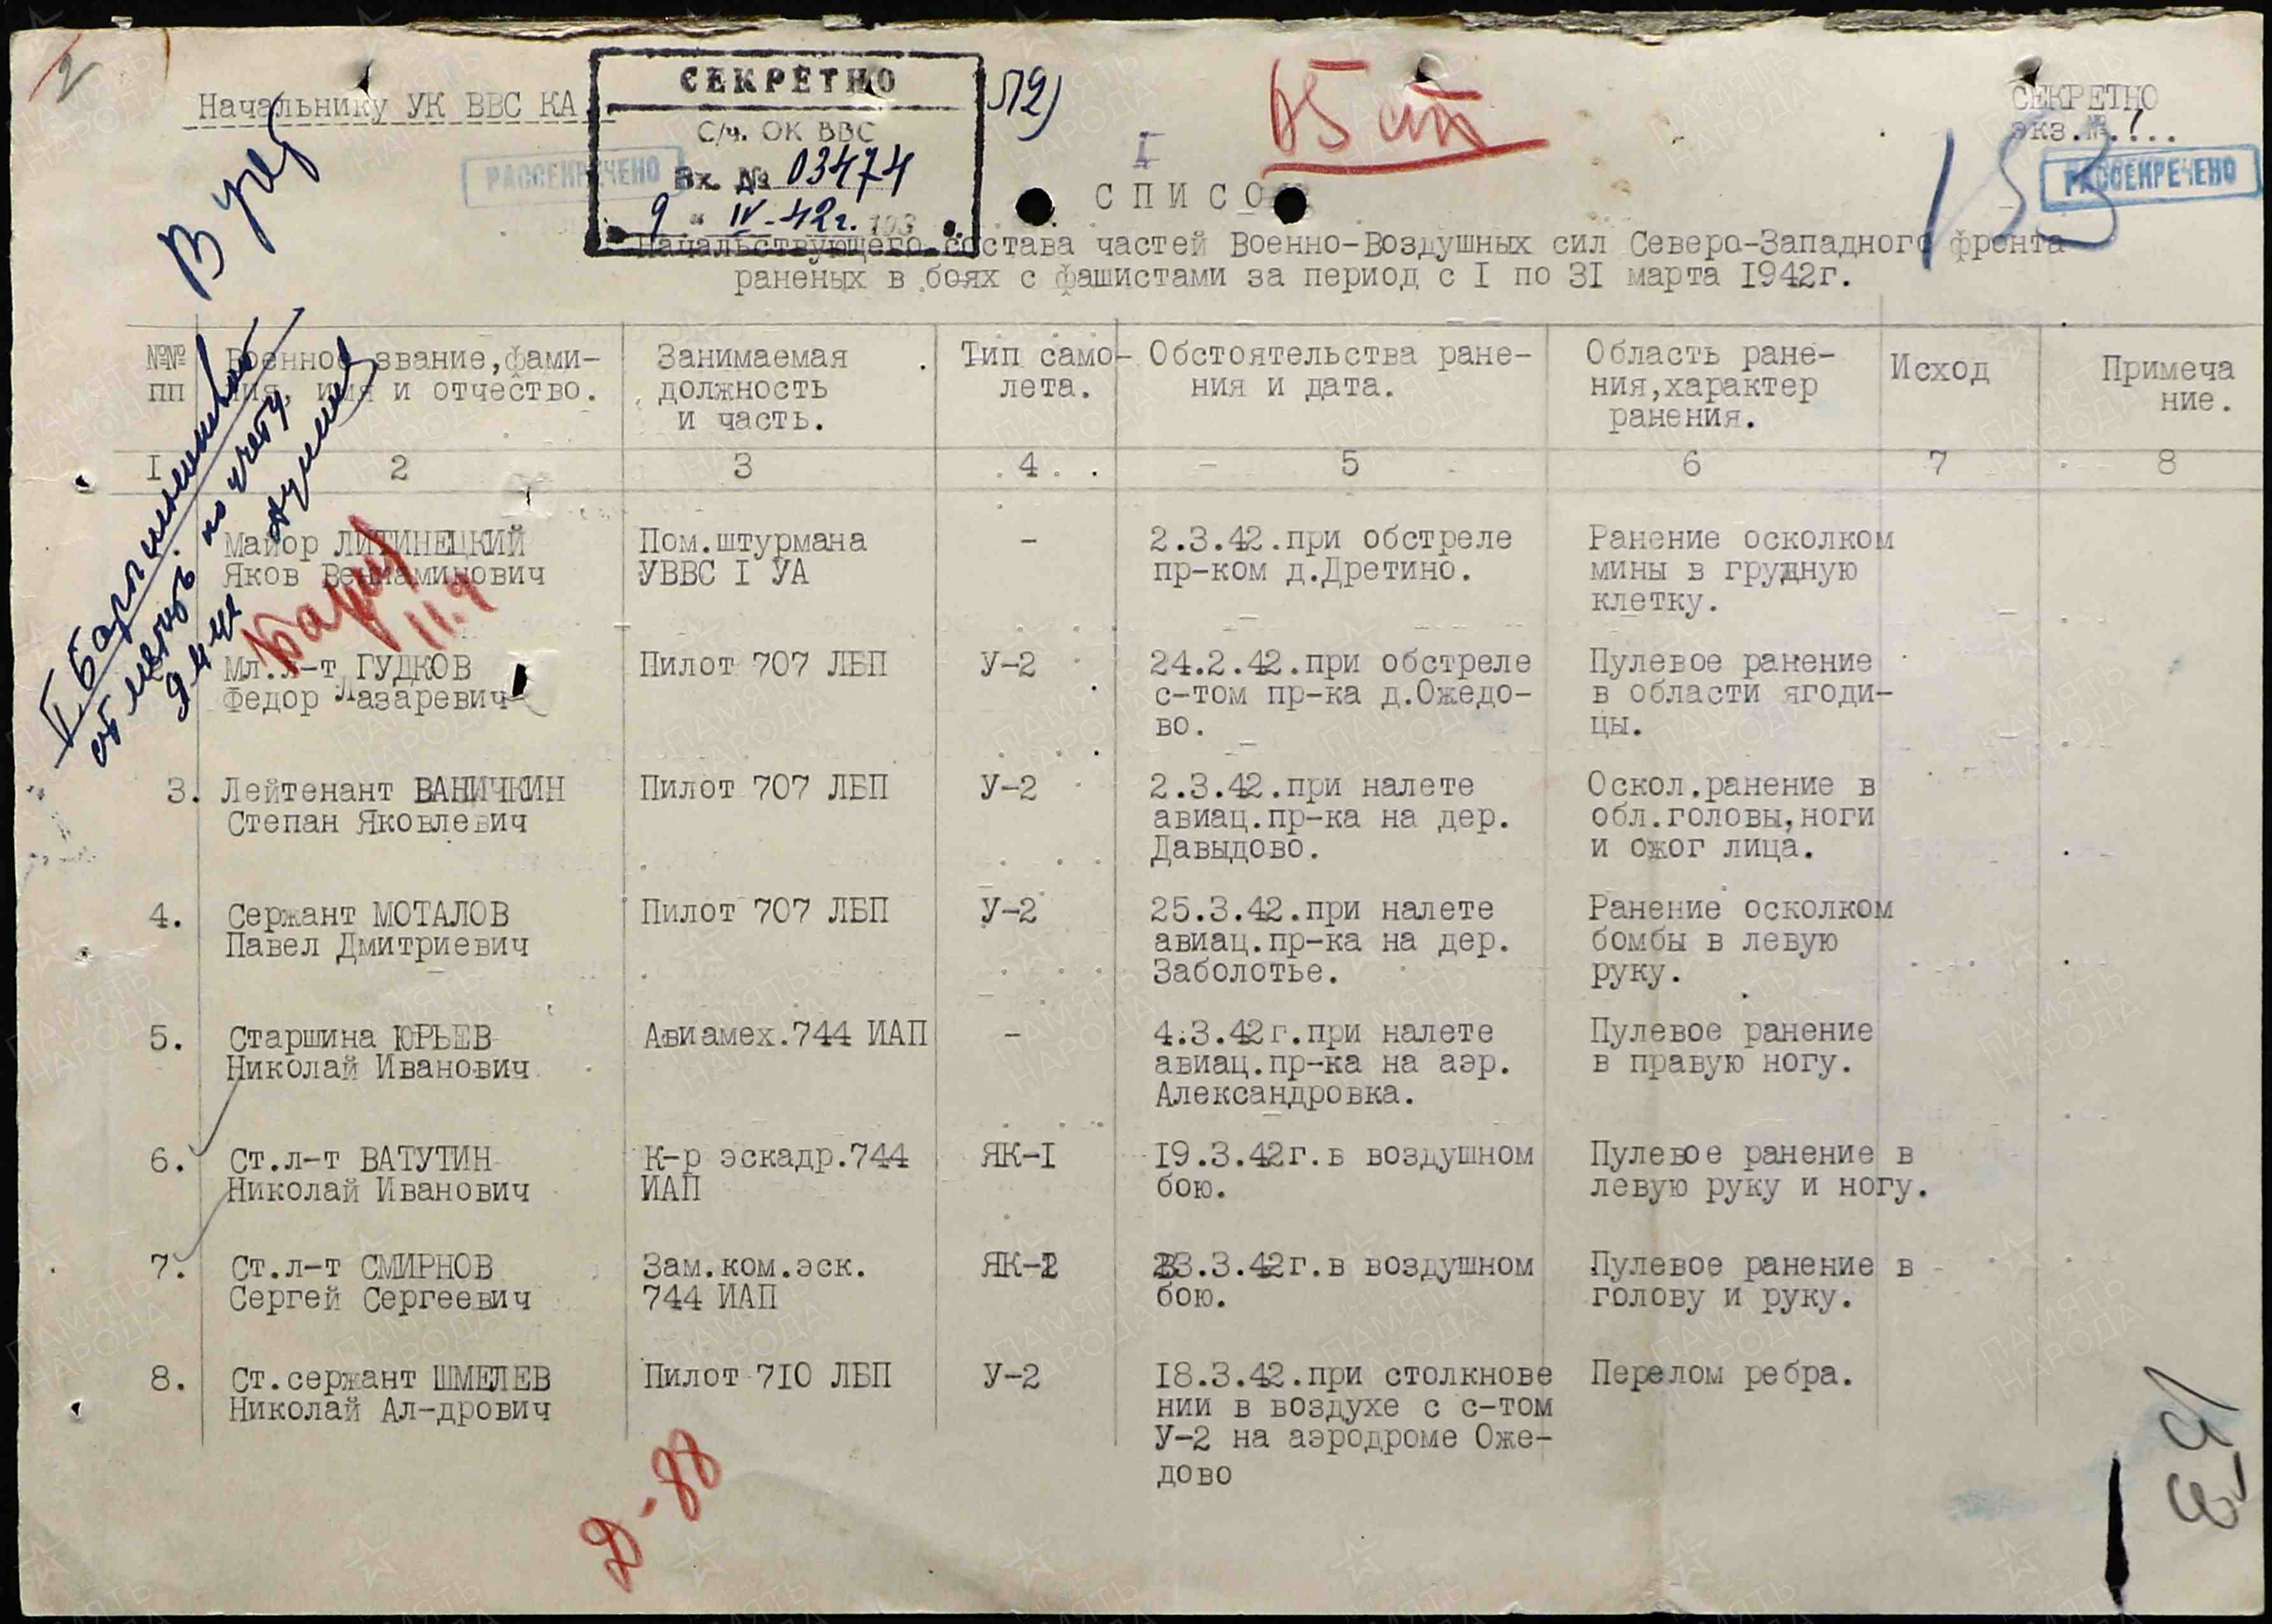 СЕКРЕТНО
С/ч. ОК ВВС
Вх. № 03474
9 " IV-42г. 193
Начальнику УК ВВС КА
РАССЕКРЕЧЕНО
СЕКРЕТНО
экз.№.1..
РАССЕКРЕЧЕНО
153
I
СПИСОК
Начальствующего состава частей Военно-Воздушных сил Северо-Западного фронта
раненых в боях с фашистами за период с I по 3I марта I942г.
№№ пп
Военное звание,фами-
лия, имя и отчество.
Занимаемая
должность
и часть.
Тип само-
лета.
Обстоятельства ране-
ния и дата.
Область ране-
ния,характер
ранения.
Исход
Примеча
ние.
I 2 3 4 5 6 7 8
Майор ЛИТИНЕЦКИЙ
Яков Вениаминович
Пом.штурмана
УВВС I УА
-
2.3.42.при обстреле
пр-ком д.Дретино.
Ранение осколком
мины в грудную
клетку.
Мл.л-т ГУДКОВ
Федор Лазаревич
Пилот 707 ЛБП
У-2
24.2.42.при обстреле
с-том пр-ка д.Ожедо-
во.
Пулевое ранение
в области ягоди-
цы.
3. Лейтенант ВАНИЧКИН
Степан Яковлевич
Пилот 707 ЛБП
У-2
2.3.42.при налете
авиац.пр-ка на дер.
Давыдово.
Оскол.ранение в
обл.головы,ноги
и ожог лица.
4. Сержант МОТАЛОВ
Павел Дмитриевич
Пилот 707 ЛБП
У-2
25.3.42.при налете
авиац.пр-ка на дер.
Заболотье.
Ранение осколком
бомбы в левую
руку.
5. Старшина ЮРЬЕВ
Николай Иванович
Авиамех.744 ИАП
-
4.3.42г.при налете
авиац.пр-ка на аэр.
Александровка.
Пулевое ранение
в правую ногу.
6. Ст.л-т ВАТУТИН
Николай Иванович
К-р эскадр.744
ИАП
ЯК-I
I9.3.42г.в воздушном
бою.
Пулевое ранение в
левую руку и ногу.
7. Ст.л-т СМИРНОВ
Сергей Сергеевич
Зам.ком.эск.
744 ИАП
ЯК-I
23.3.42г.в воздушном
бою.
Пулевое ранение в
голову и руку.
8. Ст.сержант ШМЕЛЕВ
Николай Ал-дрович
Пилот 7I0 ЛБП
У-2
I8.3.42.при столкнове
нии в воздухе с с-том
У-2 на аэродроме Оже-
дово
Перелом ребра.
Д-88